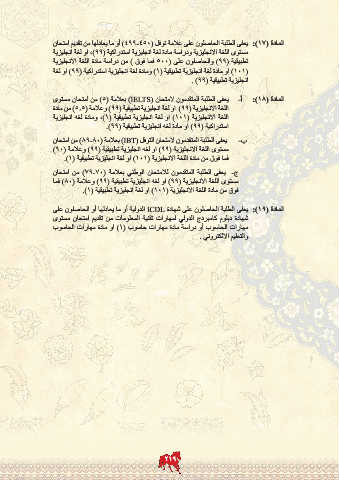 المادة (١٧): يعفى الطلبة الحاصلون على علامة توفل (٤٥٠-٤٩٩) أو ما يعادلها من تقديم امتحان
مستوى اللغة الانجليزية ودراسة مادة لغة انجليزية استدراكية (٩٩)، او لغة انجليزية
تطبيقية (٩٩) والحاصلون على (٥٠٠ فما فوق) من دراسة مادة اللغة الانجليزية
(١٠١) او مادة لغة انجليزية تطبيقية (١) ومادة لغة انجليزية استدراكية (٩٩) او لغة
انجليزية تطبيقية (٩٩).
المادة (١٨): أ- يعفى الطلبة المتقدمون لامتحان (IELTS) بعلامة (٥) من امتحان مستوى
اللغة الانجليزية (٩٩) او لغة انجليزية تطبيقية (٩٩) وعلامة (٥,٥) من مادة
اللغة الانجليزية (١٠١) او لغة انجليزية تطبيقية (١)، ومادة لغة انجليزية
استدراكية (٩٩) او مادة لغة انجليزية تطبيقية (٩٩).
ب- يعفى الطلبة المتقدمون لامتحان التوفل (IBT) بعلامة (٨٠-٨٩) من امتحان
مستوى اللغة الانجليزية (٩٩) او لغة انجليزية تطبيقية (٩٩) وعلامة (٩٠)
فما فوق من مادة اللغة الانجليزية (١٠١) او لغة انجليزية تطبيقية (١).
ج- يعفى الطلبة المتقدمون للامتحان الوطني بعلامة (٧٠-٧٩) من امتحان
مستوى اللغة الانجليزية (٩٩) او لغة انجليزية تطبيقية (٩٩) وعلامة (٨٠) فما
فوق من مادة اللغة الانجليزية (١٠١) او لغة انجليزية تطبيقية (١).
المادة (١٩): يعفى الطلبة الحاصلون على شهادة ICDL الدولية أو ما يعادلها أو الحاصلون على
شهادة دبلوم كامبردج الدولي لمهارات تقنية المعلومات من تقديم امتحان مستوى
مهارات الحاسوب أو دراسة مادة مهارات حاسوب (١) او مادة مهارات الحاسوب
والتعليم الالكتروني.